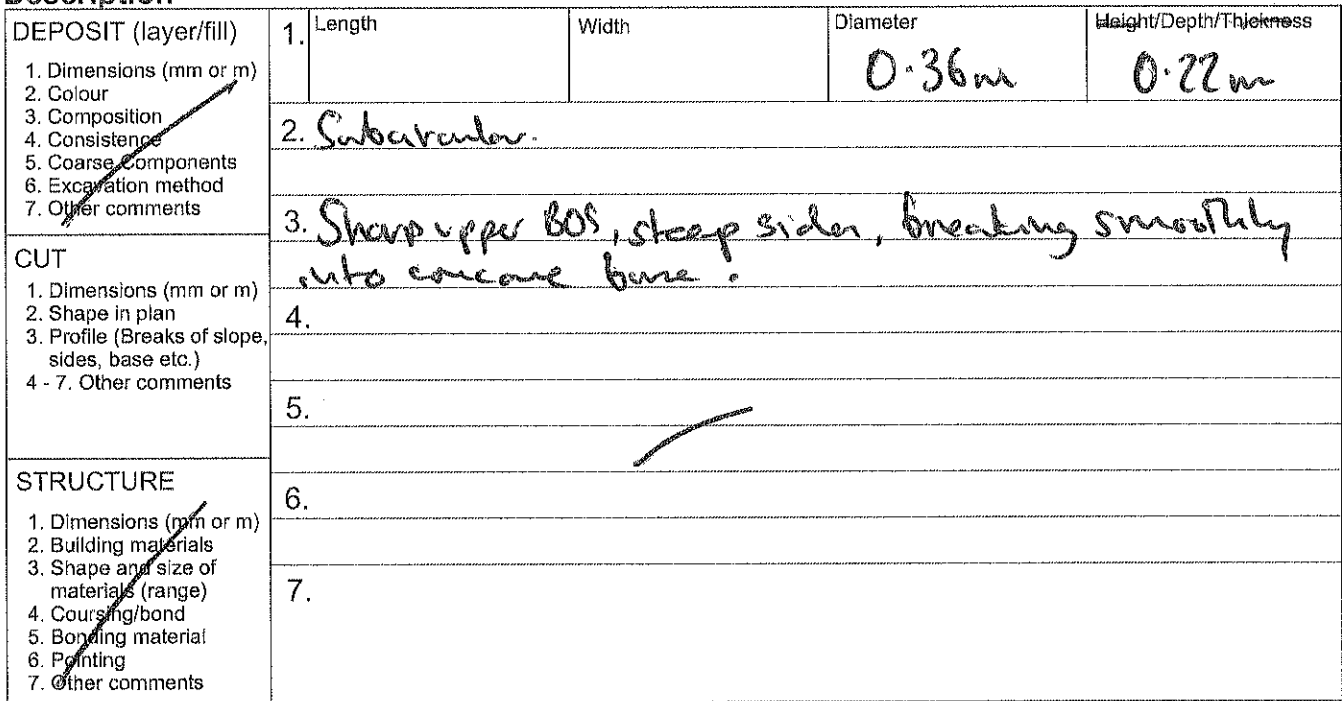 Description
DEPOSIT (layer/fill)
1. Dimensions (mm or m)
2. Colour
3. Composition
4. Consistence
5. Coarse Components
6. Excavation method
7. Other comments
CUT
1. Dimensions (mm or m)
2. Shape in plan
3. Profile (Breaks of slope,
sides, base etc.)
4 - 7. Other comments
STRUCTURE
1. Dimensions (mm or m)
2. Building materials
3. Shape and size of
materials (range)
4. Coursing/bond
5. Bonding material
6. Pointing
7. Other comments
1. Length Width Diameter Height/Depth/Thickness
0.36m 0.22m
2. Subcircular.
3. Sharp upper BOS, steep sides, breaking smoothly
into concave base.
4.
5.
6.
7.